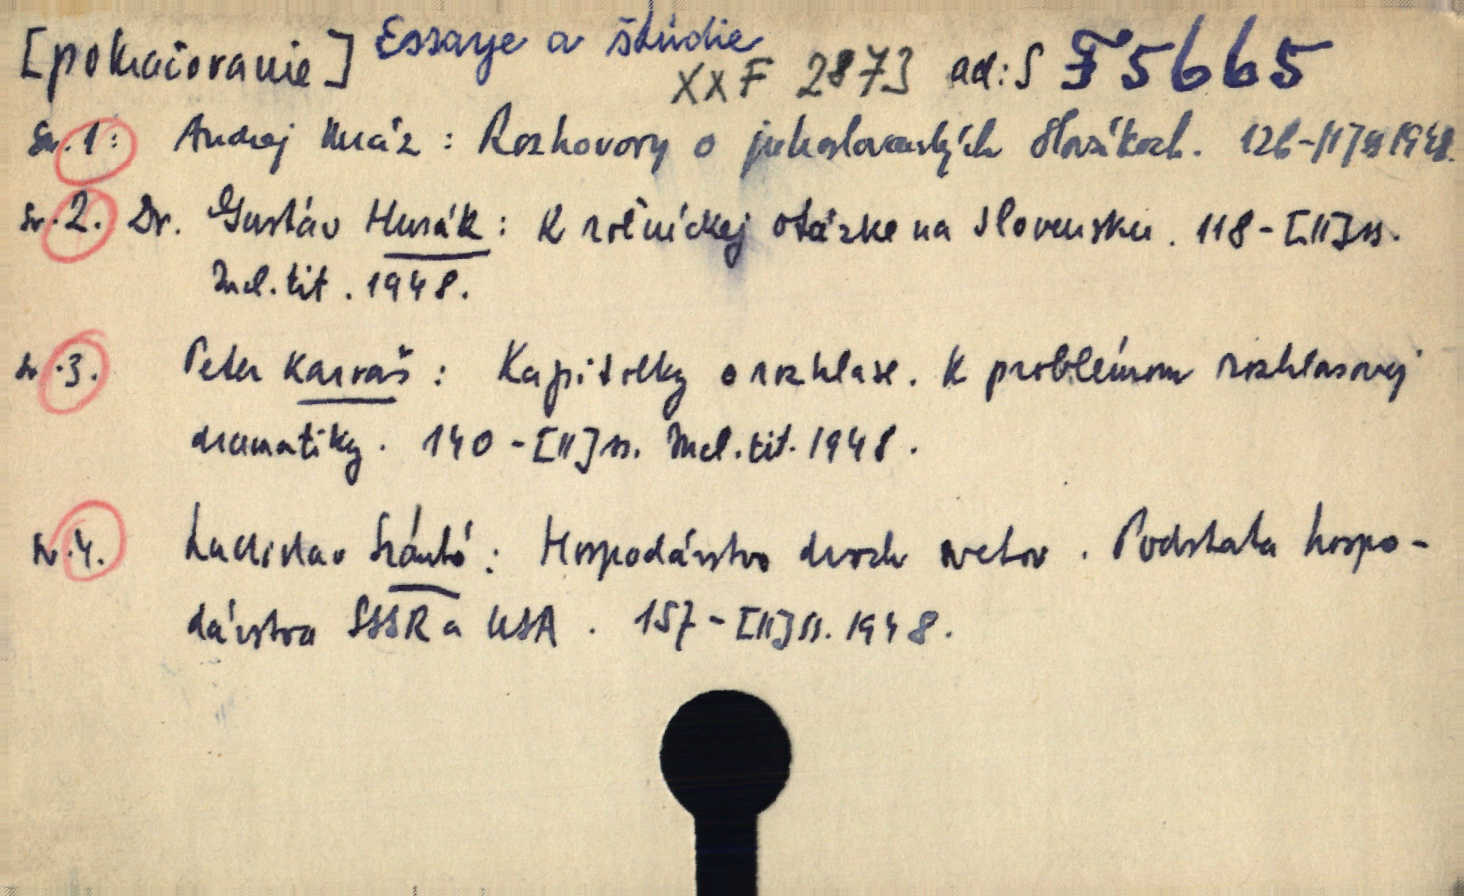 [pokračovanie] Essaye a štúdie
XXF 2873 ad: S F5665
Sv. 1: Andrej Mráz : Rozhovory o juhoslovanských Slovákoch. 126-[II] ss 1948.
Sv. 2. Dr. Gustáv Husák : K roľníckej otázke na Slovensku. 118-[II] ss.
Incl. tit. 1948.
Sv. 3. Peter Karvaš : Kapitolky o rozhlase. K problémom rozhlasovej
dramatiky. 140-[II] ss. Incl. tit. 1948.
Sv. 4. Ladislav Szántó : Hospodárstvo dvoch svetov. Podstata hospo-
dárstva SSSR a USA. 157-[II] ss. 1948.